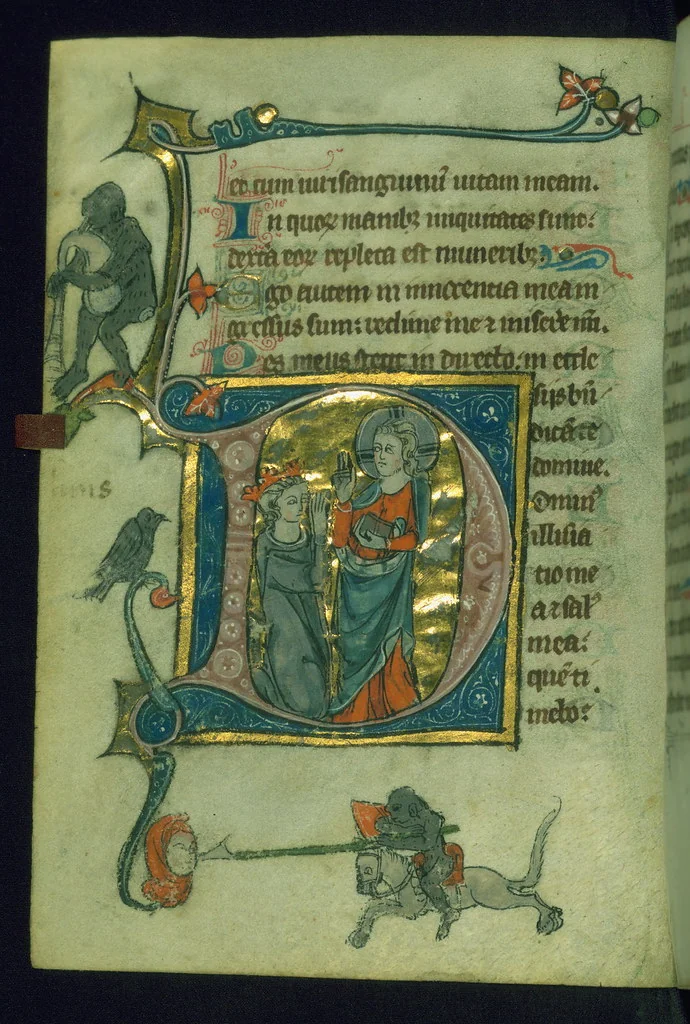 et cum uiris anguinu͛ uitam meam.
In quoꝝ manibꝫ iniquitates sunt:
dextra eoꝝ repleta est muneribꝫ.
Ego autem in innocentia mea in
gressus sum: redime me ⁊ miserere mi.
Pes meus stetit in directo: in eccle
siis bñ
dicã te
domine.
Dominꝰ
illu͞ia
tio me
a ⁊ sal
mea:
que͂ ti
mebo: